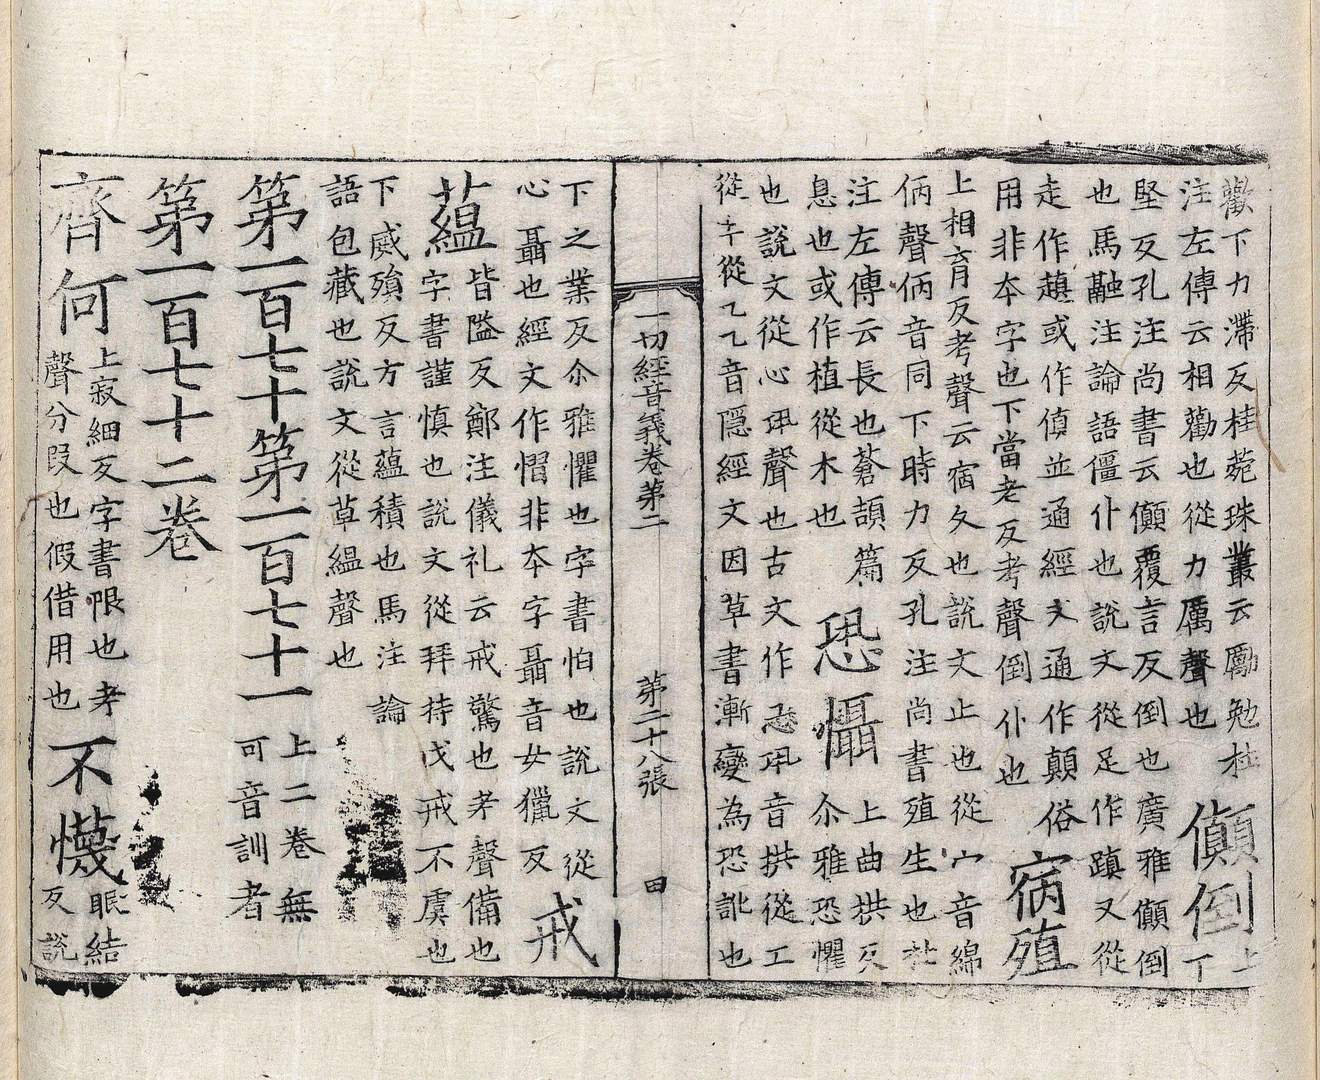 勸下力滯反桂菀珠叢云勵勉杜
注左傳云相勸也從力厲聲也 儥倒 上丁
堅反孔注尚書云儥覆言反倒也廣雅儥倒
也馬融注論語僵仆也說文從足作蹎又從
走作趙或作傎並通經文通作顛俗 㝛殖
用非本字也下當老反考聲倒仆也
上相育反考聲云宿久也說文止也從宀音綿
㑉聲㑉音同下時力反孔注尚書殖生也杜
注左傳云長也蒼頡篇 恐懾 上曲拱反
息也或作植從木也 尒雅恐懼
也說文從心巩聲也古文作恐巩音拱從工
從丮從乙乙音隱經文因草書漸變為恐訛也
一切經音義卷第二 第二十八張 田
下之業反尒雅懼也字書怕也說文從 戒
心聶也經文作慴非本字聶音女獵反
蘊 皆隘反鄭注儀礼云戒驚也考聲備也
字書謹慎也說文從拜持戈戒不虞也
下威殞反方言蘊積也馬注論
語包藏也說文從草縕聲也
第一百七十第一百七十一 上二卷無
可音訓者
第一百七十二卷
齊何 上寂細反字書恨也考 不懱 眠結
聲分段也假借用也 反說